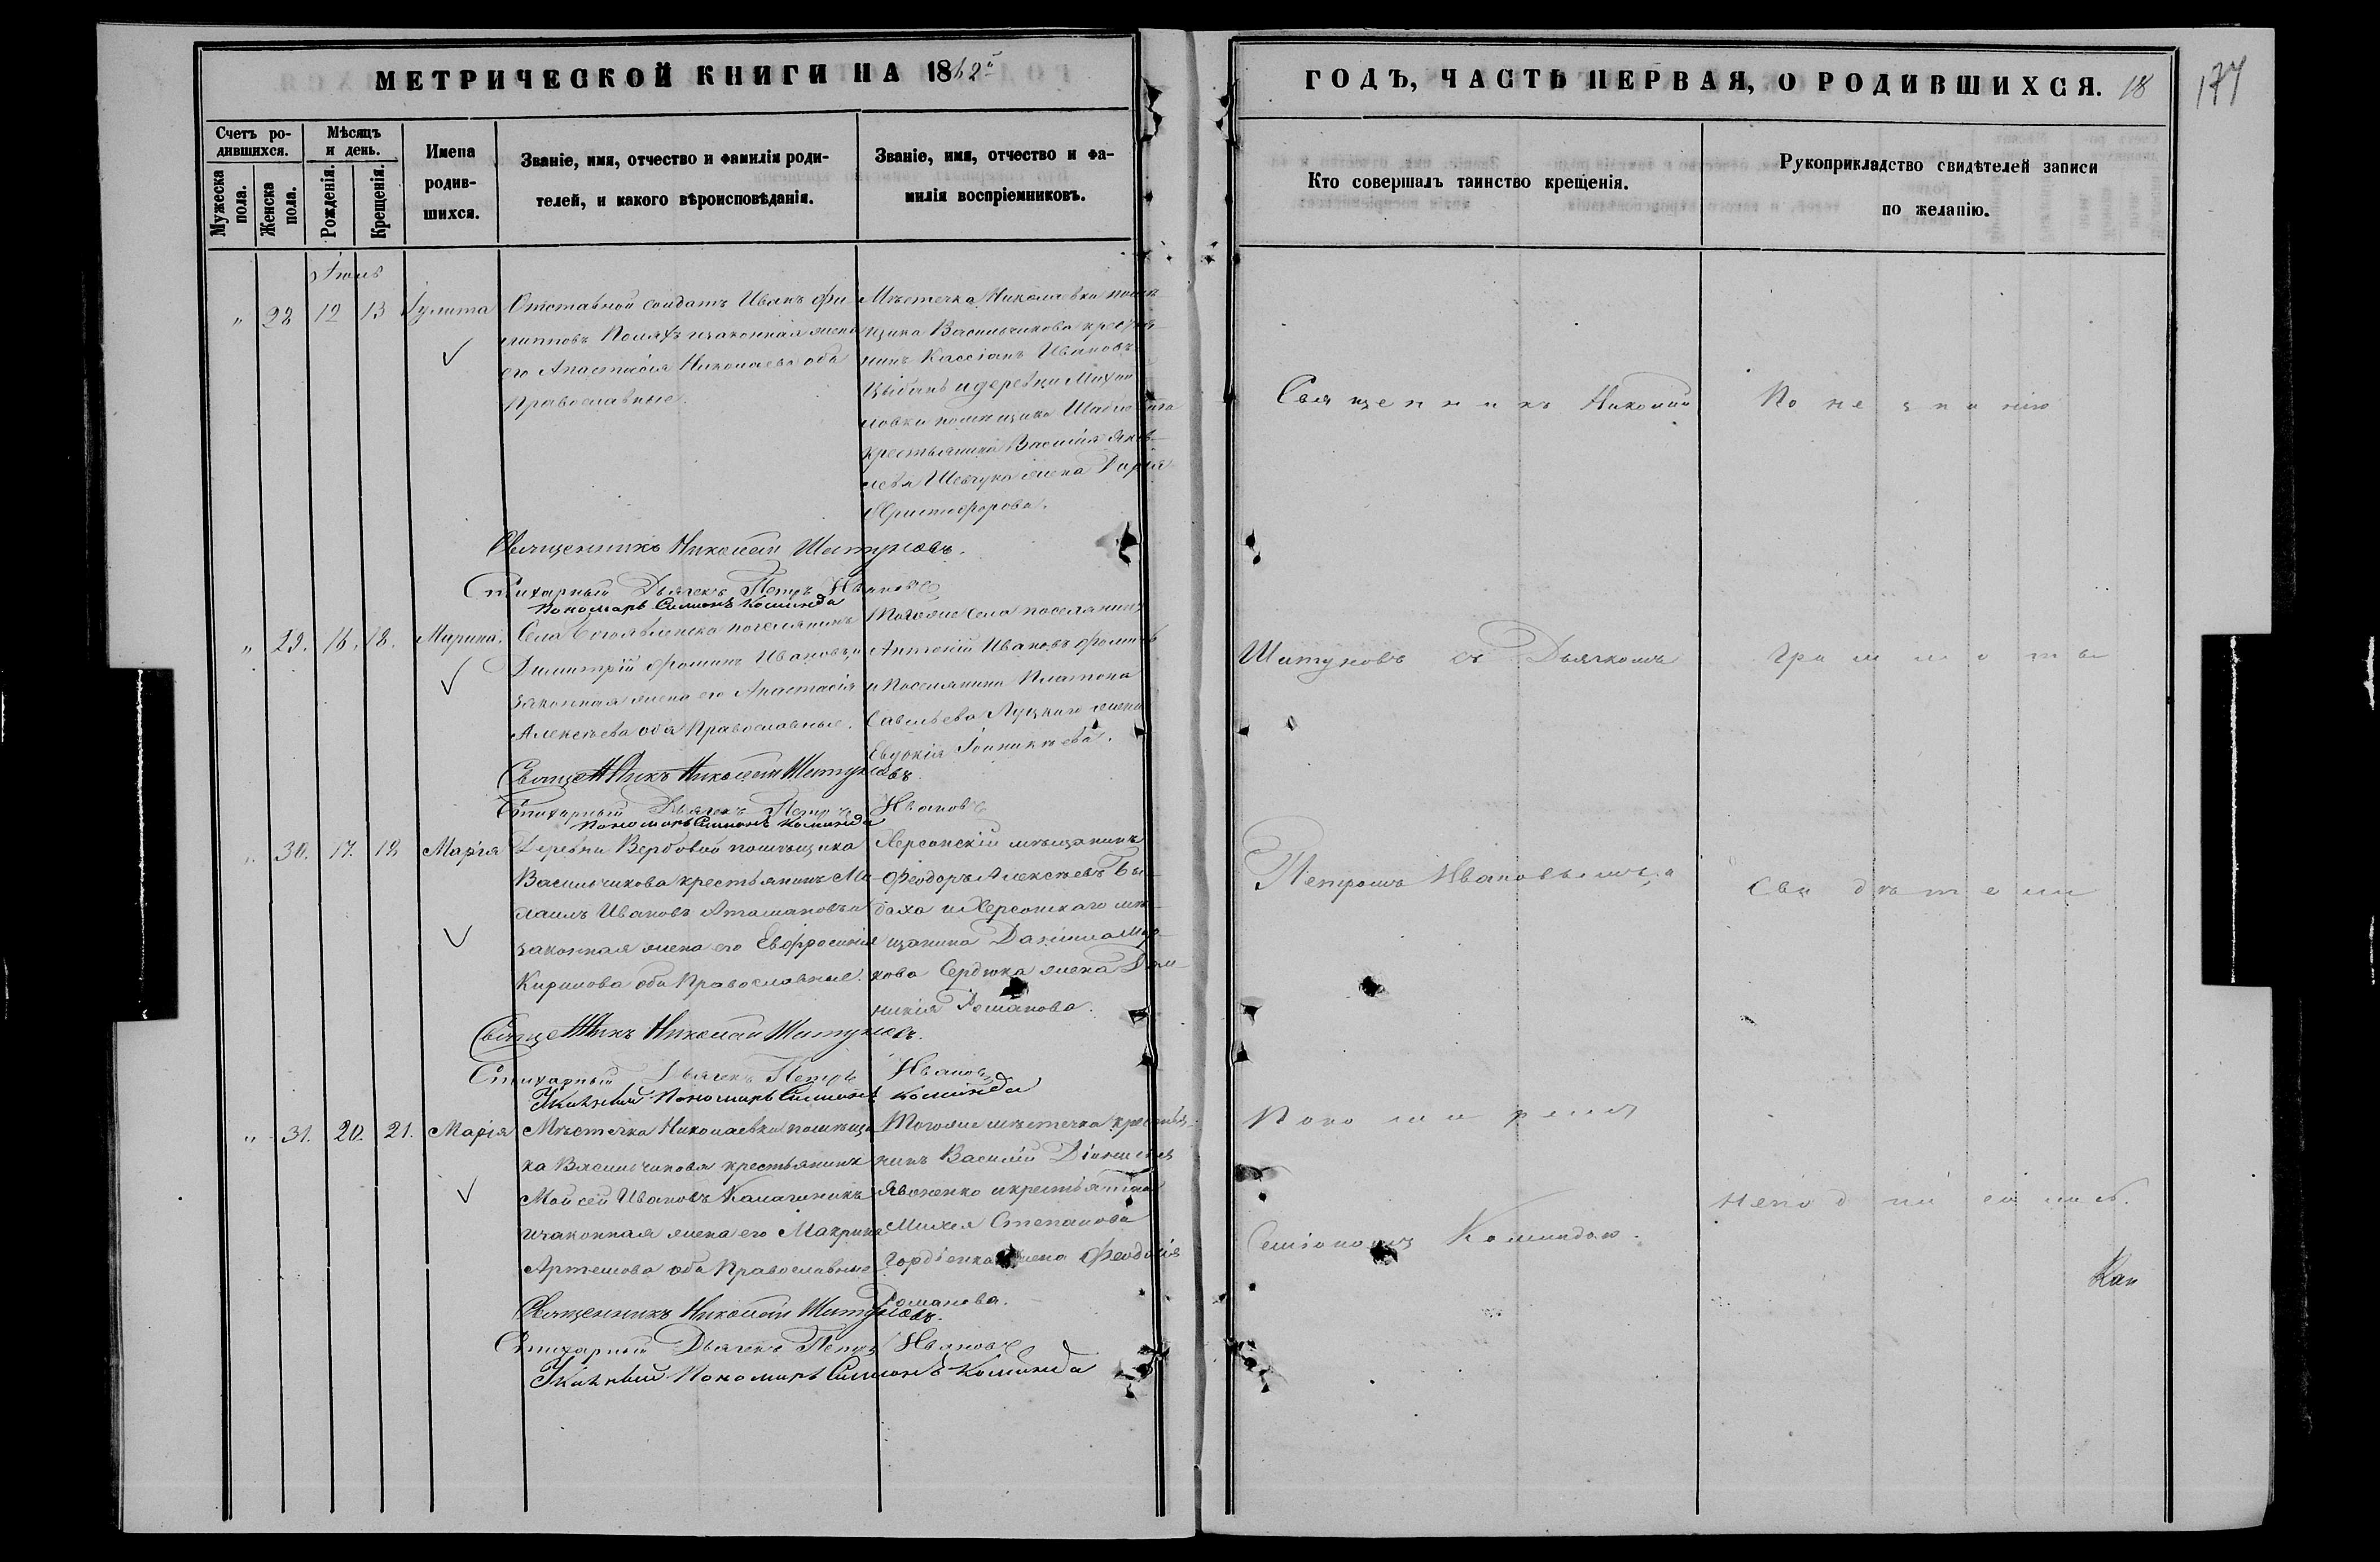 МЕТРИЧЕСКОЙ КНИГИ НА 1862й
ГОДЪ, ЧАСТЬ ПЕРВАЯ, О РОДИВШИХСЯ. 18
177
Счетъ ро-
дившихся.
Мужеска пола.
Женска пола.
Мѣсяцъ
и день.
Рожденія.
Крещенія.
Имена
родив-
шихся.
Званіе, имя, отчество и фамилія роди-
телей, и какого вѣроисповѣданія.
Званіе, имя, отчество и фа-
милія воспріемниковъ.
Кто совершалъ таинство крещенія.
Рукоприкладство свидѣтелей записи
по желанію.
Іюль
" 28 12 13 Іулита
Отставной солдатъ Иванъ Фи-
липповъ изаконная жена
его Анастасія Николаева оба
Православные.
Мѣстечка Николаевки помѣ-
щика Васильчикова крестья-
нинъ Кассіанъ Ивановъ
Цыбань идеревни Михай-
ловки помѣщика
крестьянина Василія Яков-
лева Шевчука жена Дарія
Христофорова.
Священникъ Николай Шатуновъ.
Стихарный Дьячекъ Петръ Ивановъ
Пономарь Симіонъ Коминда
" 29. 16. 18. Марина.
Села Богоявленска поселянинъ
Димитрій Фоминъ Ивановъ и
законная жена его Анастасія
Алексѣева оба Православные.
Тогоже села поселянинъ
Антоній Ивановъ Фоминъ
и Поселянина Платона
Савельева Луцкаго жена
Евдокія Іоанникіева.
Священникъ Николай Шатуновъ
Стихарный Дьячекъ Петръ Ивановъ
Пономарь Симіонъ Коминда
" 30. 17. 18 Марія
Деревни Вербовой помѣщика
Васильчикова крестьянинъ Ми-
хаилъ Ивановъ Атамановъ и
законная жена его Евфросинія
Кирилова оба Православные.
Херсонскій мѣщанинъ
Феодоръ Алексѣевъ Бы-
баха и Херсонскаго мѣ-
щанина Даніила Мар-
кова Сердюка жена Дом-
никія Романова.
Священникъ Николай Шатуновъ.
Стихарный Дьячекъ Петръ Ивановъ
Указный Пономарь Симіонъ Коминда
" 31. 20. 21. Марія
Мѣстечка Николаевки помѣщи-
ка Васильчикова крестьянинъ
Мойсей Ивановъ Калашникъ
изаконная жена его Макрина
Артемова оба Православные
Тогоже мѣстечка крестья-
нинъ Василій Діонисіевъ
Явоненко икрестьянина
Михея Степанова
Гордіенка жена Феодосія
Романова.
Священникъ Николай Шатуновъ.
Стихарный Дьячекъ Петръ Ивановъ
Указный Пономарь Симіонъ Коминда
Священникъ Николай
Шатуновъ съ Дьячкомъ
Петромъ Ивановымъ и
Пономаремъ
Симіономъ Коминдою.
По незнанію
граммоты
свидѣтели
неподписались.